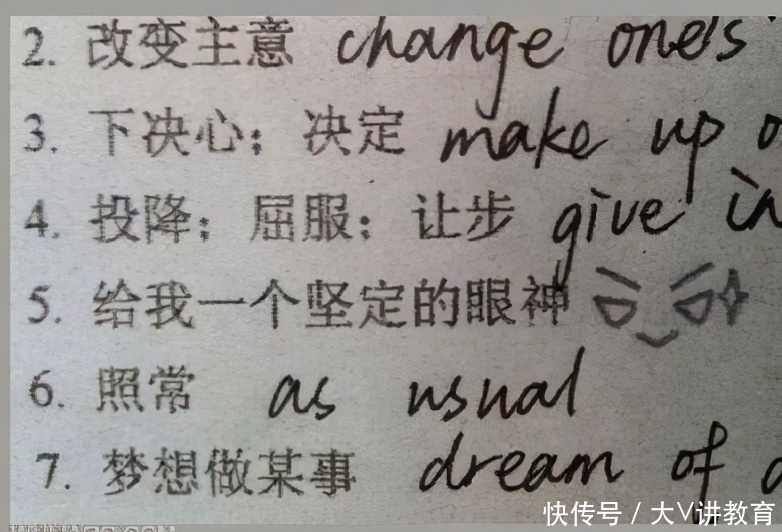 2. 改变主意 change one's
3. 下决心；决定 make up o
4. 投降；屈服；让步 give in
5. 给我一个坚定的眼神
6. 照常 as usual
7. 梦想做某事 dream of d
快传号 / 大V讲教育